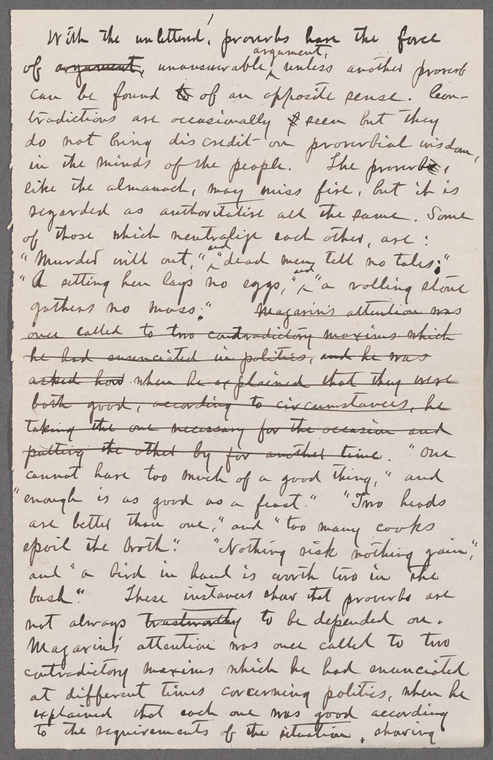 With the unlettered, proverbs have the force
argument,
of argument, unanswerable, unless another proverb
can be found to of an opposite sense. Con-
tradictions are occasionally seen but they
do not bring discredit on proverbial wisdom,
in the minds of the people. The proverb,
like the almanack, may miss fire, but it is
regarded as authoritative all the same. Some
of those which neutralize each other, are:
"Murder will out," and "dead men tell no tales;"
"A sitting hen lays no eggs," and "a rolling stone
gathers no moss." Mazarin's attention was
once called to two contradictory maxims which
he had enunciated in politics, and he was
asked how when he explained that they were
both good, according to circumstances, he
taking the one necessary for the occasion and
putting the other by for another time. "One
cannot have too much of a good thing," and
"enough is as good as a feast." "Two heads
are better than one," and "too many cooks
spoil the broth." "Nothing risk nothing gain,"
and "a bird in hand is worth two in the
bush." These instances show that proverbs are
not always trustworthy to be depended on.
Mazarin's attention was once called to two
contradictory maxims which he had enunciated
at different times concerning politics, when he
explained that each one was good according
to the requirements of the situation, showing